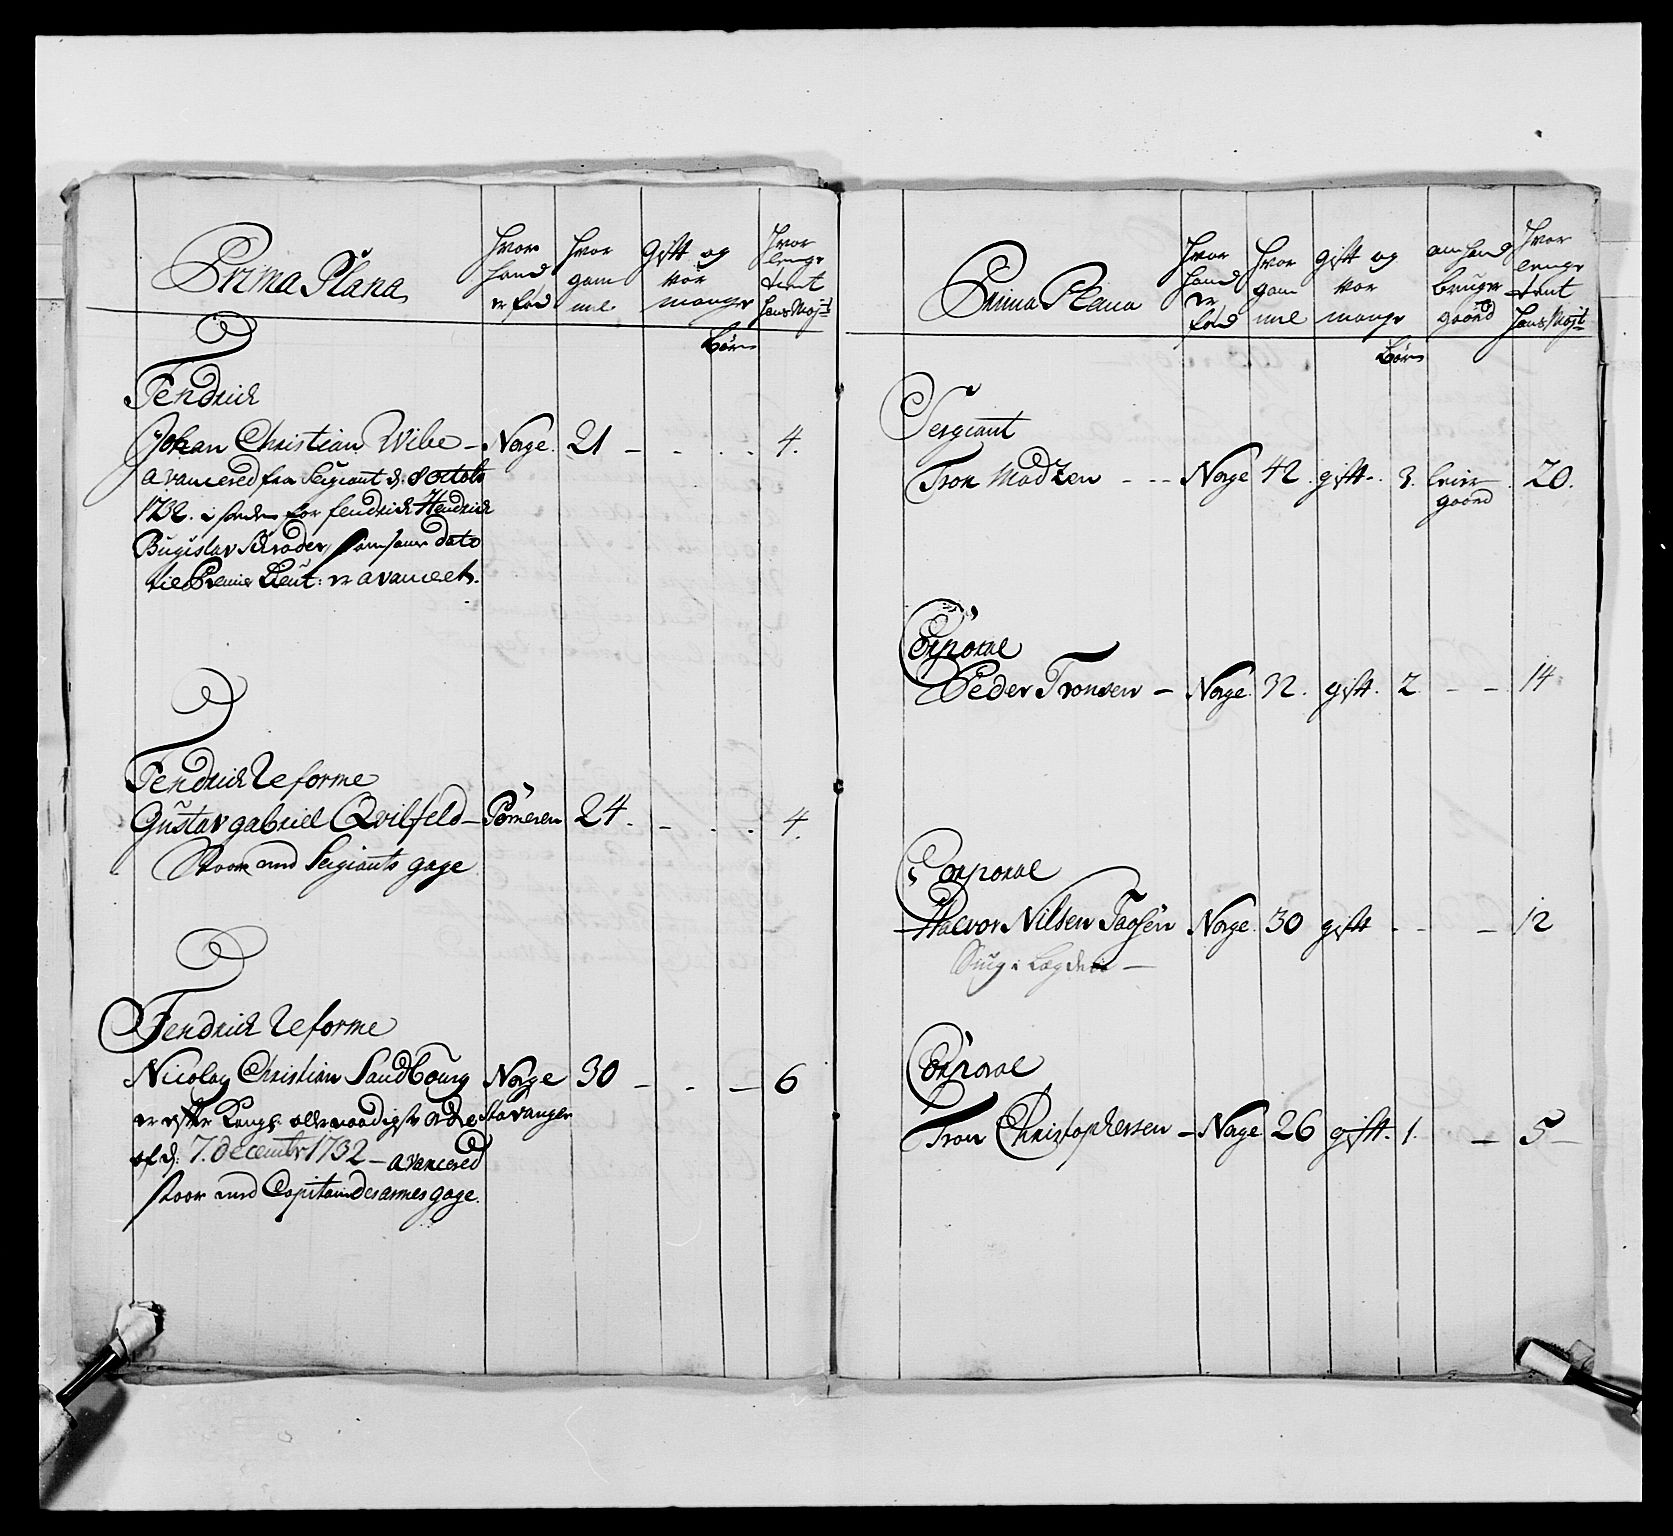 Prima Plana
Hvor hand er fød
Hvor gam mel
Gift og vor mange Børn
Hvor lenge tient Hans Majt
Fendrich
Johan Christian Wibe - Norge. 21 - - . . 4.
avancered fra Sergiant d: 8 octob
1732. i steden for fendrich Hendrich
Bugislav Schrøder, som samme dato
til Premier Lieut: er avanceret.
Fendrich Reforme
Gustav gabriel Qvilfeld - Pomeren 24. - . . 4.
Staar med Sergiants gage
Fendrich Reforme
Nicolay Christian Sandbourg Norge 30 - - - 6
er efter Kongl: allernaadigste ordre Stavanger
af d: 7. december 1732 - avancered
staar med Capitaindesarmes gage.
Prima Plana
Hvor hand er fød
Hvor gam mel
gift og vor mange Børn
om hand bruger gaard
Hvor lenge tient Hans Majt
Sergiant
Tron Madzen - - - Norge 42. gift. 3. leier gaard. 20.
Corporal
Peder Tronsen - Norge. 32. gift. 2 - - 14
Corporal
Halvor Nilsen Norge. 30 gift - - - 12
Siug i Lægderne -
Corporal
Tron Christophersen - Norge 26 gift. 1. - 5 -